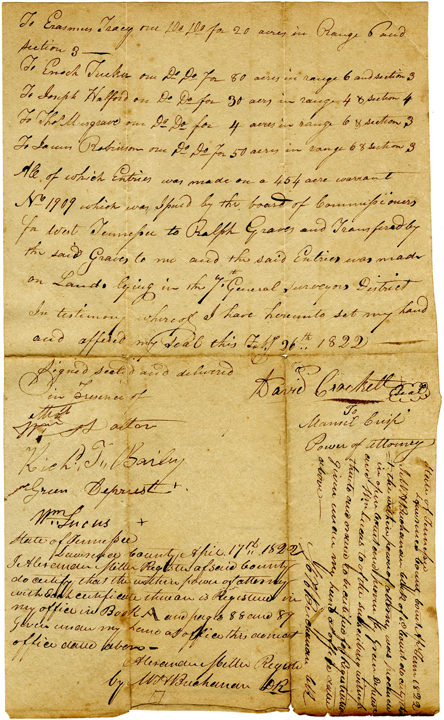 To Erasmus Tracy one Do Do for 20 acres in Range 6 and
section 3
To Enoch Tucker one Do Do for 80 acres in range 6 and section 3
To Joseph Halford on Do Do for 30 acrs in range 4 & section 4
To Thos Musgrave one Do Do for 4 acres in range 6 & section 3
To Lewis Robinson one Do Do for 50 acres in range 6 & section 3
All of which Entries was made on a 454 acre warrant
No 1909 which was Isued by the board of Commissioners
for West Tennessee to Ralph Graves and Transfered by
the said Graves to me and the said Entries was made
on Lands lying in the 7th General Surveyors District
In testimony whereof I have hereunto set my hand
and affixed my seal this 26th 1822
Signed seal'd and delivered
in Presence of
David Crockett Seal
Richd T. Bailey
Green Depriest
Wm Lucus
To
Mansil Crisp
Power of attorney
State of Tennessee
Lawrence County April 17th 1822
I Alexander Miller Register of said County
do certify that the within power of attorney
with certificate thereon is Registered in
my office in Book A and page 86 and 87
Given under my hand at office this
office date above
Alexander Miller Register
by M H Buchanan DR
State of Tennessee
Lawrence County 1822
I M H Buchanan clerk of
the within power of attorney was
in open court and proven by Green Depriest
and Wm Lucus two of the subscribing witness
thereto and ordered to be certified for Registration
given under my hand at office date
above
M H Buchanan